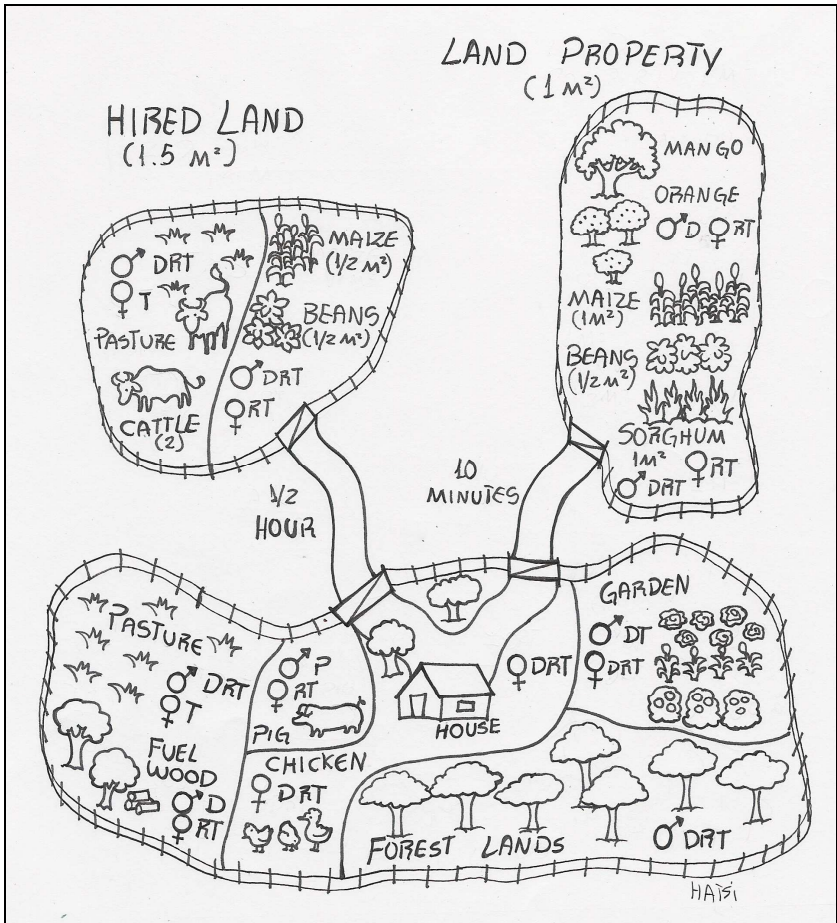 LAND PROPERTY
(1 M²)
HIRED LAND
(1.5 M²)
♂ DRT
♀ T
PASTURE
CATTLE
(2)
MAIZE
(1/2 M²)
BEANS
(1/2 M²)
♂ DRT
♀ RT
MANGO
ORANGE
♂ D ♀ RT
MAIZE
(1M²)
BEANS
(1/2 M²)
SORGHUM
1M²
♀ RT
♂ DRT
1/2
HOUR
10
MINUTES
PASTURE
♂ DRT
♀ T
FUEL
WOOD
♂ D
♀ RT
♂ P
♀ RT
PIG
CHICKEN
♀ DRT
HOUSE
♀ DRT
GARDEN
♂ DT
♀ DRT
FOREST LANDS
♂ DRT
HAISI